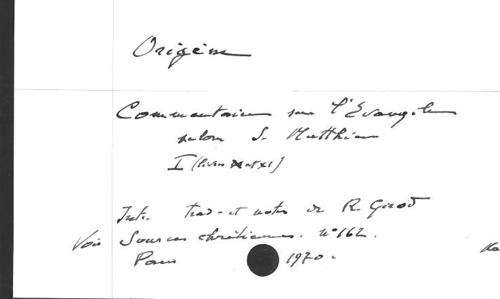 Origène
Commentaire sur l'Evangile
selon S. Matthieu
I (livres X et XI)
Intr. trad. et notes de R. Girod
Voir Sources chrétiennes. n° 162.
Paris 1970.